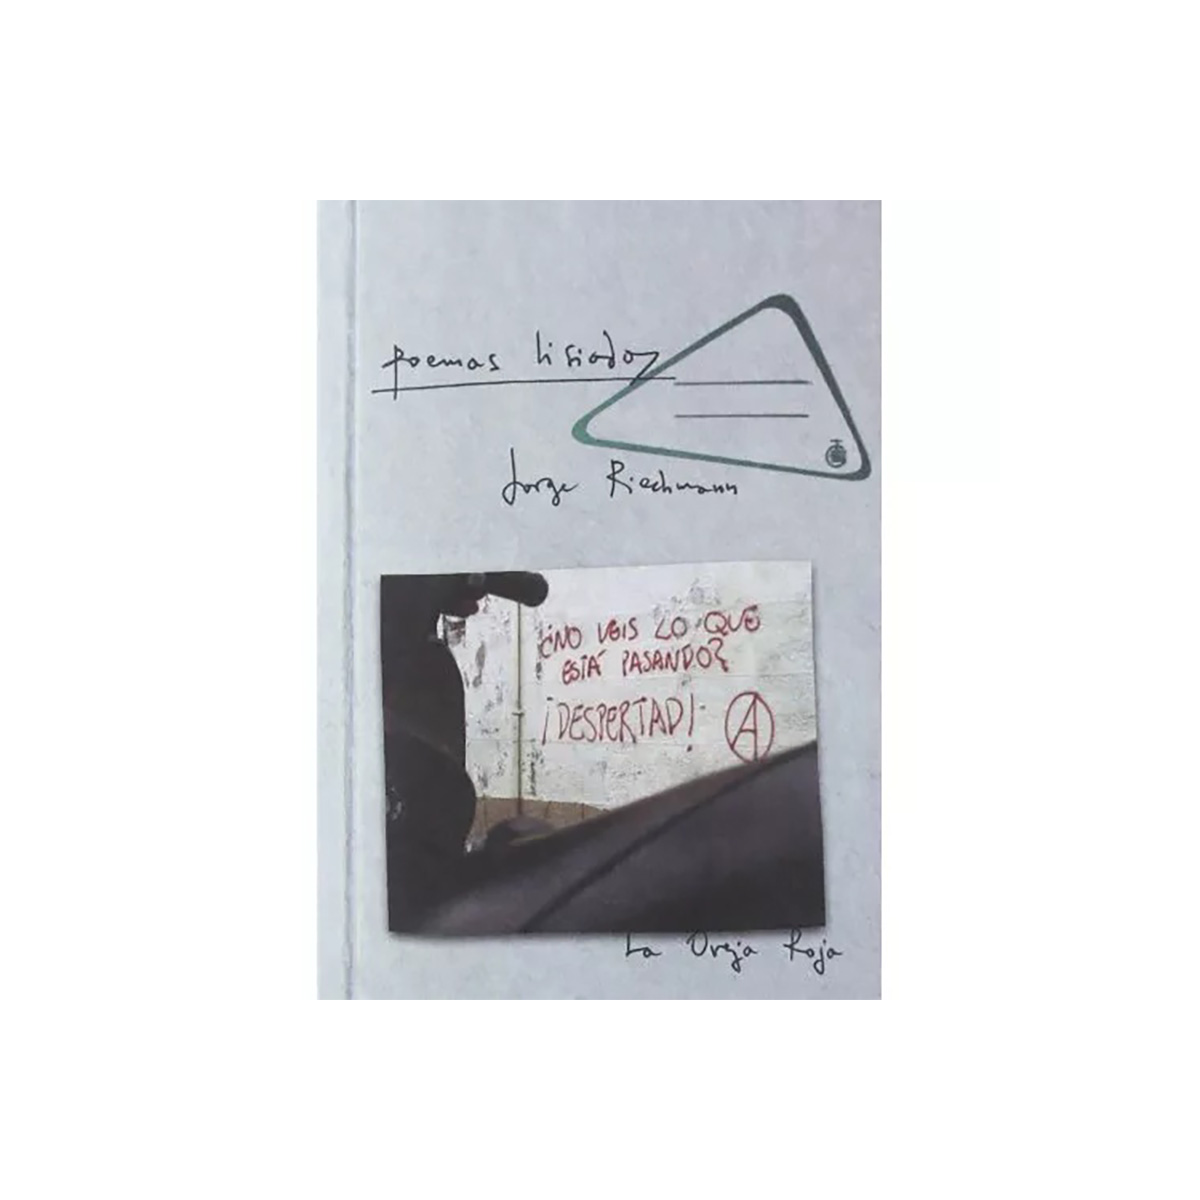 poemas lisiados
Jorge Riechmann
¿NO VEIS LO QUE
ESTÁ PASANDO?
¡DESPERTAD!
La Oveja Roja